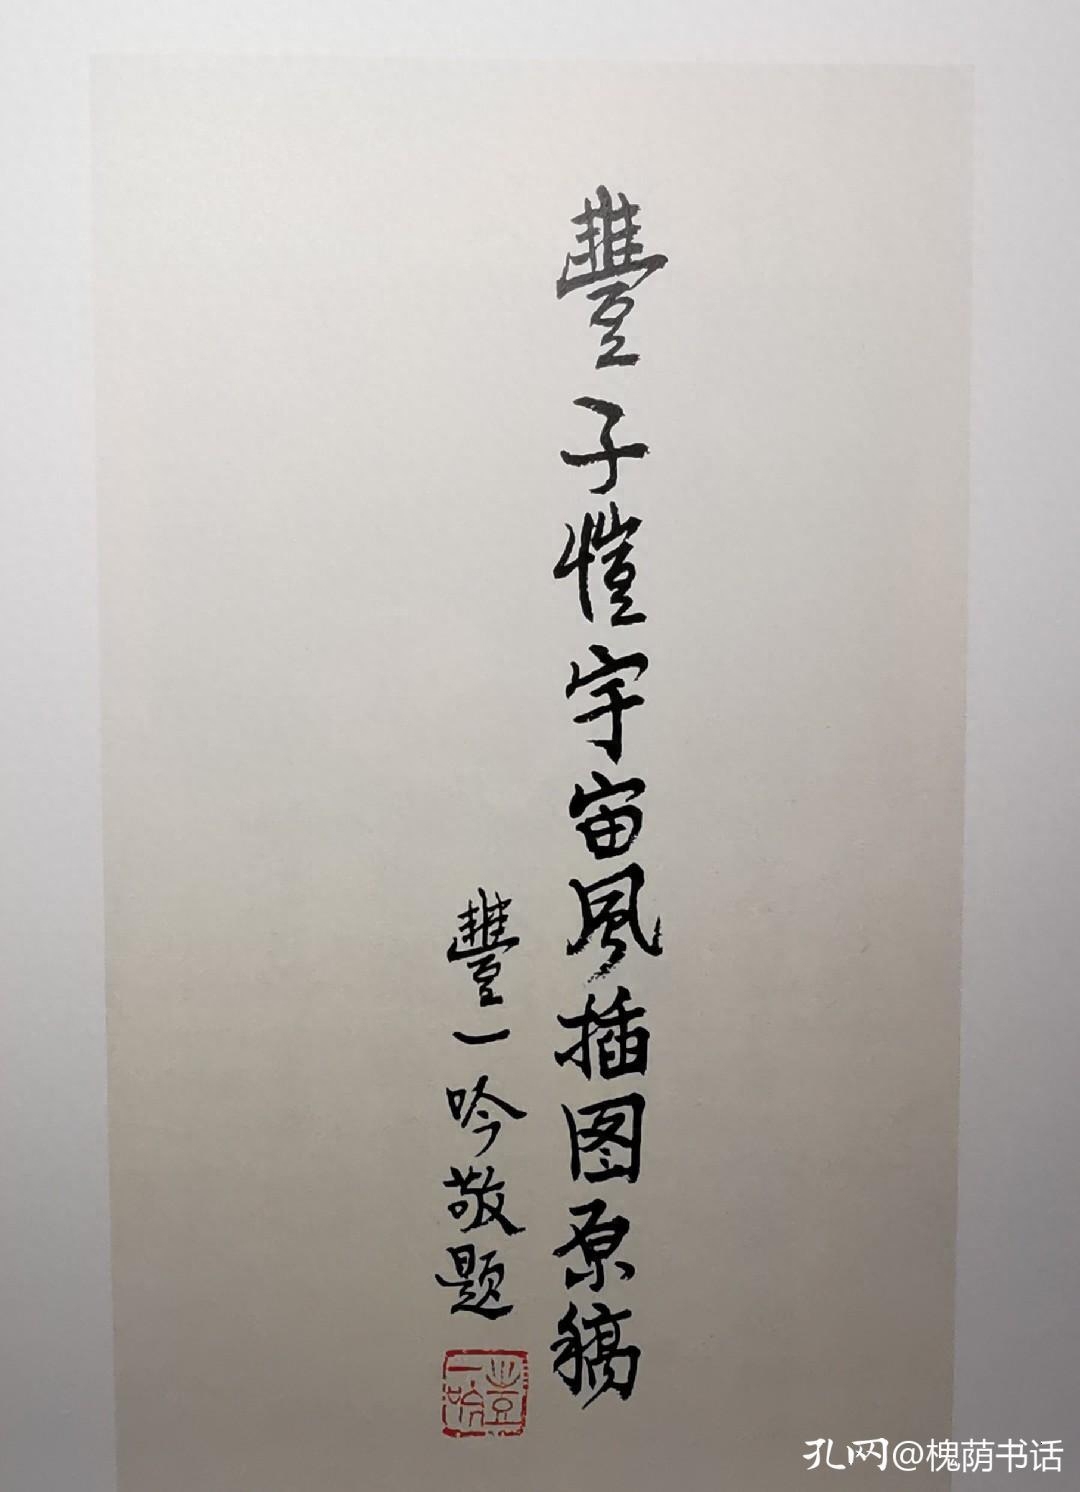 豐子愷宇宙风插图原稿
豐一吟敬题
豐一吟
孔网@槐荫书话